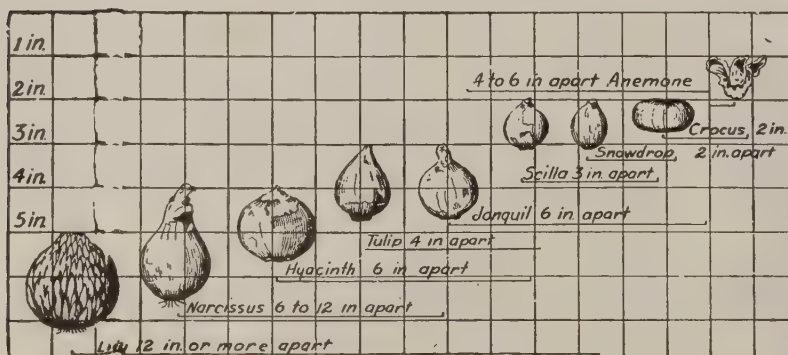 1 in.
4 to 6 in apart Anemone
2 in.
Crocus, 2 in.
3 in.
Snowdrop, 2 in. apart
4 in.
Scilla 3 in apart
5 in.
Jonquil 6 in apart
Tulip 4 in apart
Hyacinth 6 in apart
Narcissus 6 to 12 in apart
Lily 12 in. or more apart